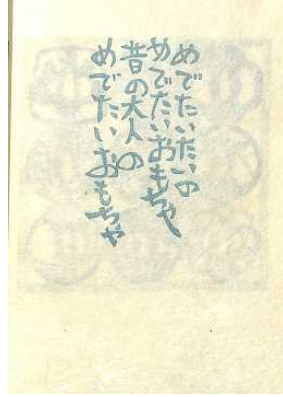 めでたいたいの
めでたいおもちゃ
昔の大人の
めでたいおもちゃ